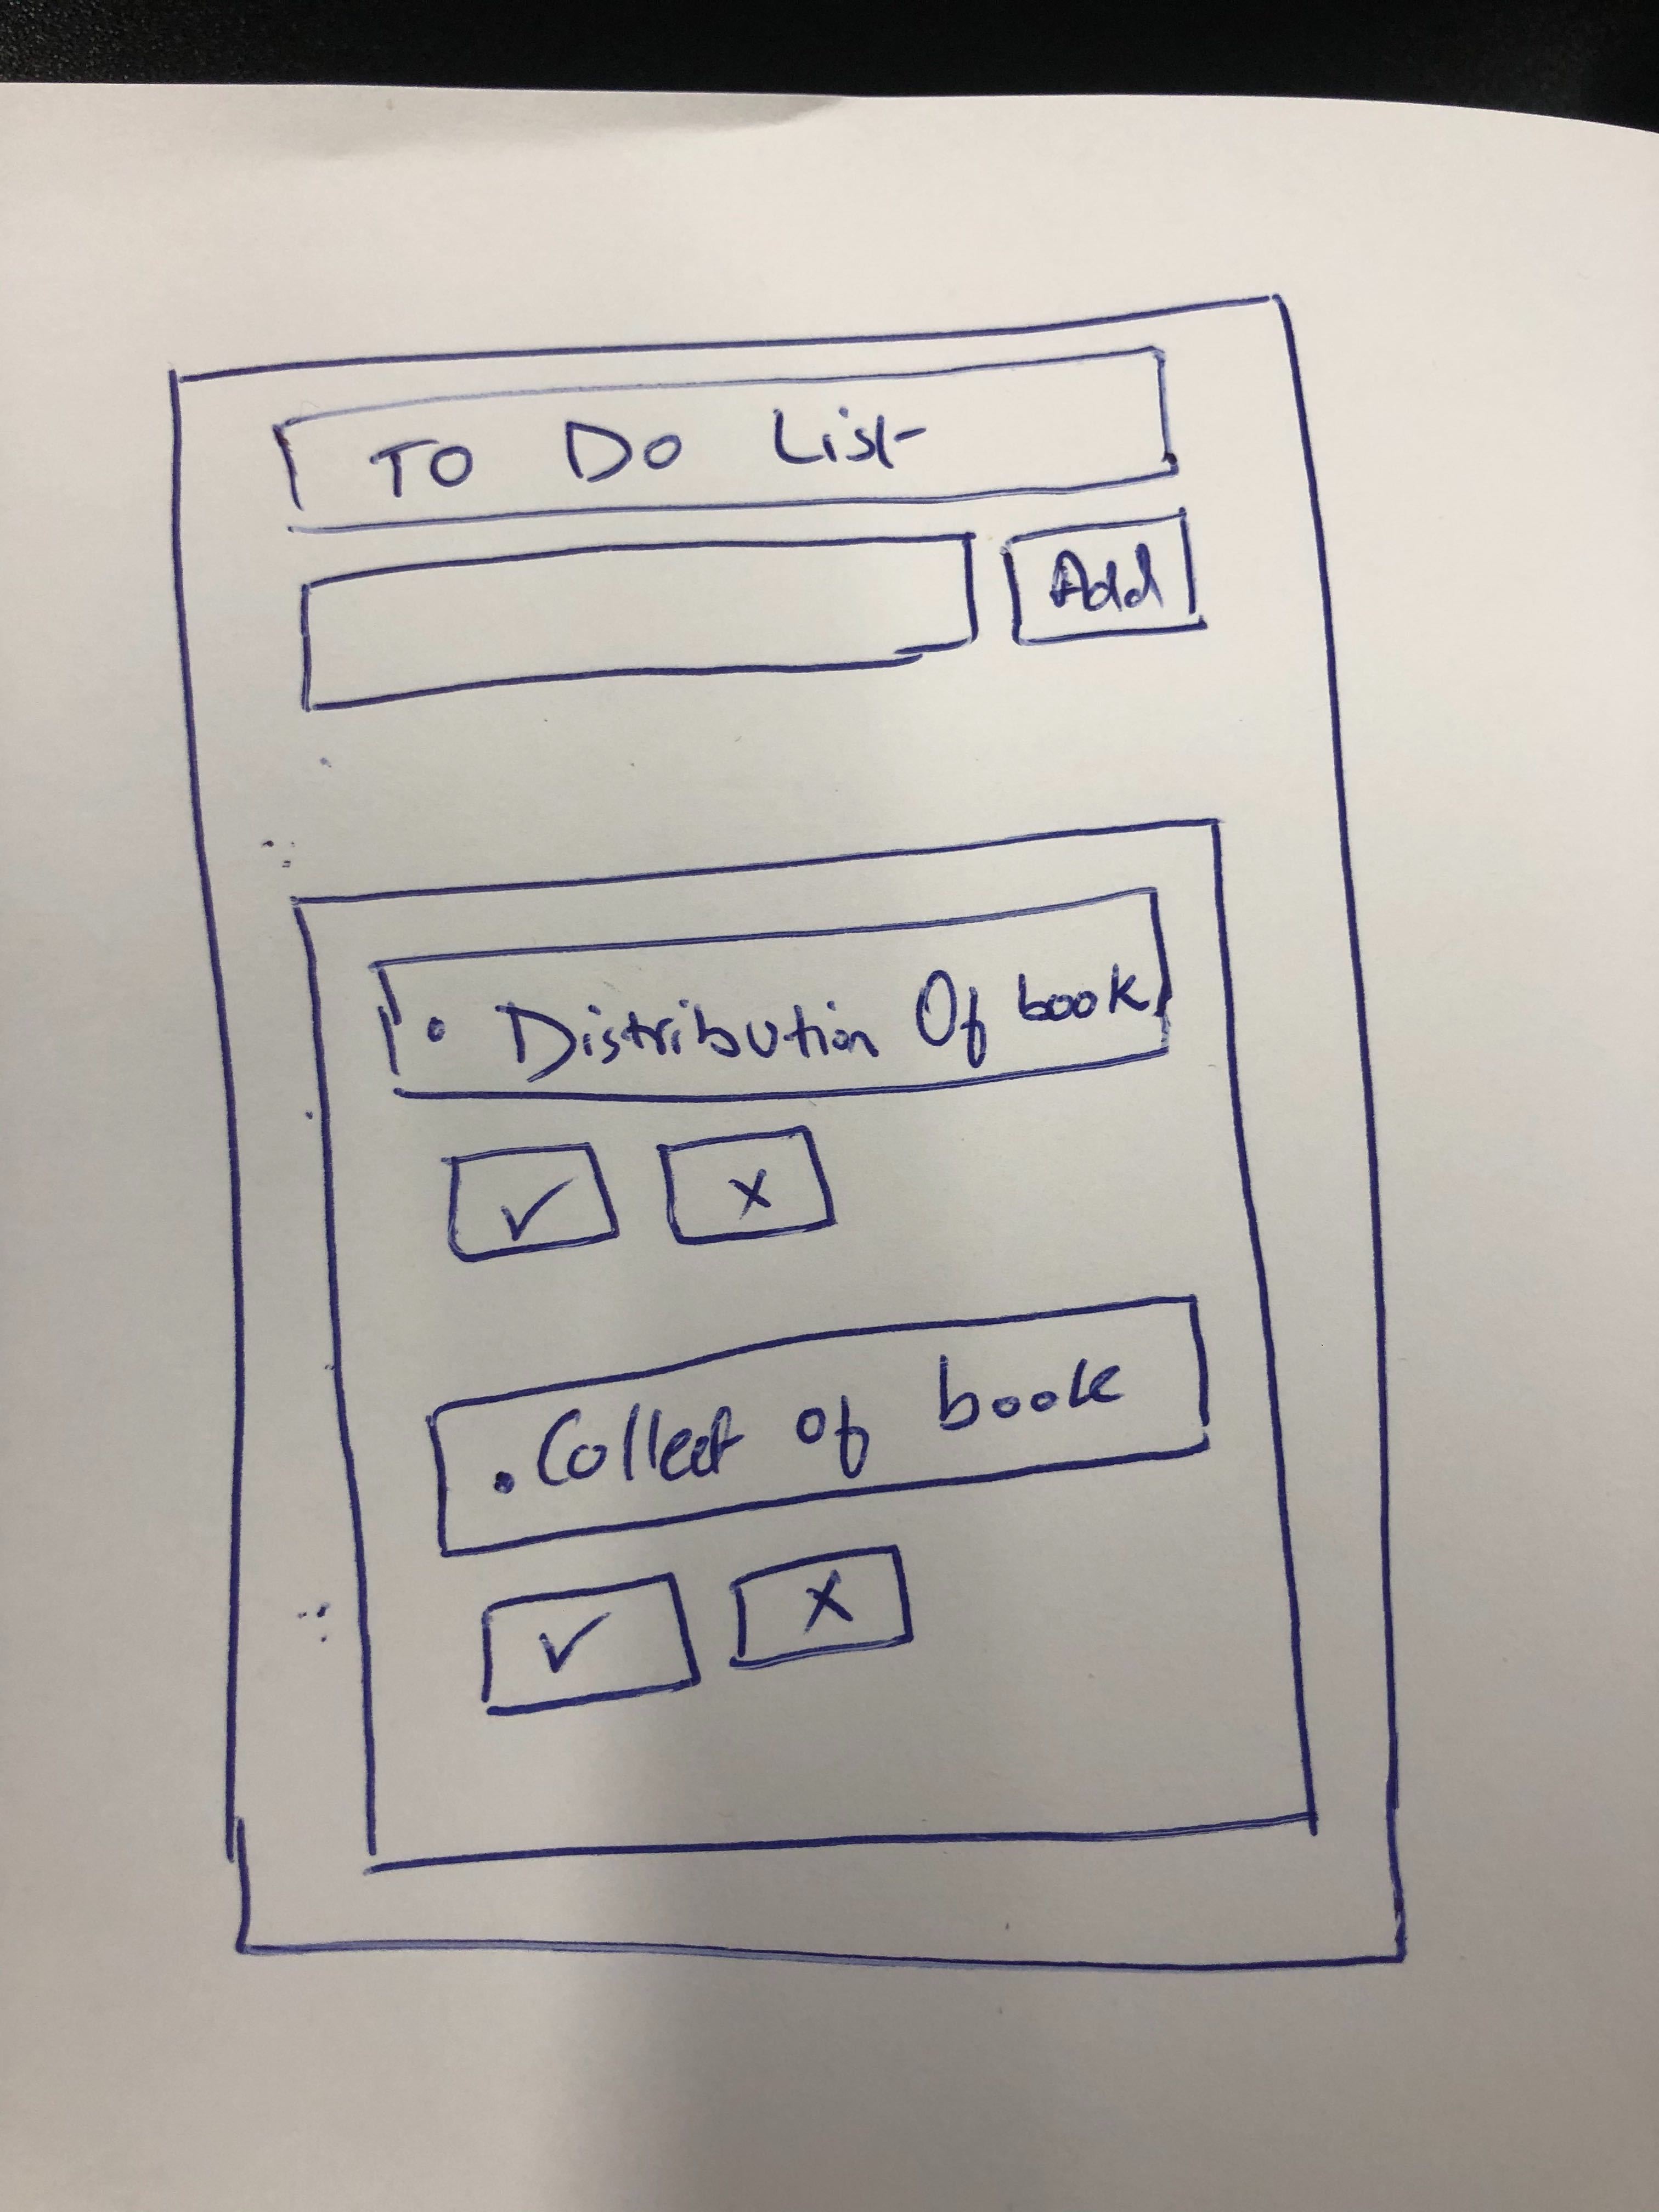 TO Do List
Add
• Distribution Of book
✓ x
• Collect of book
✓ x